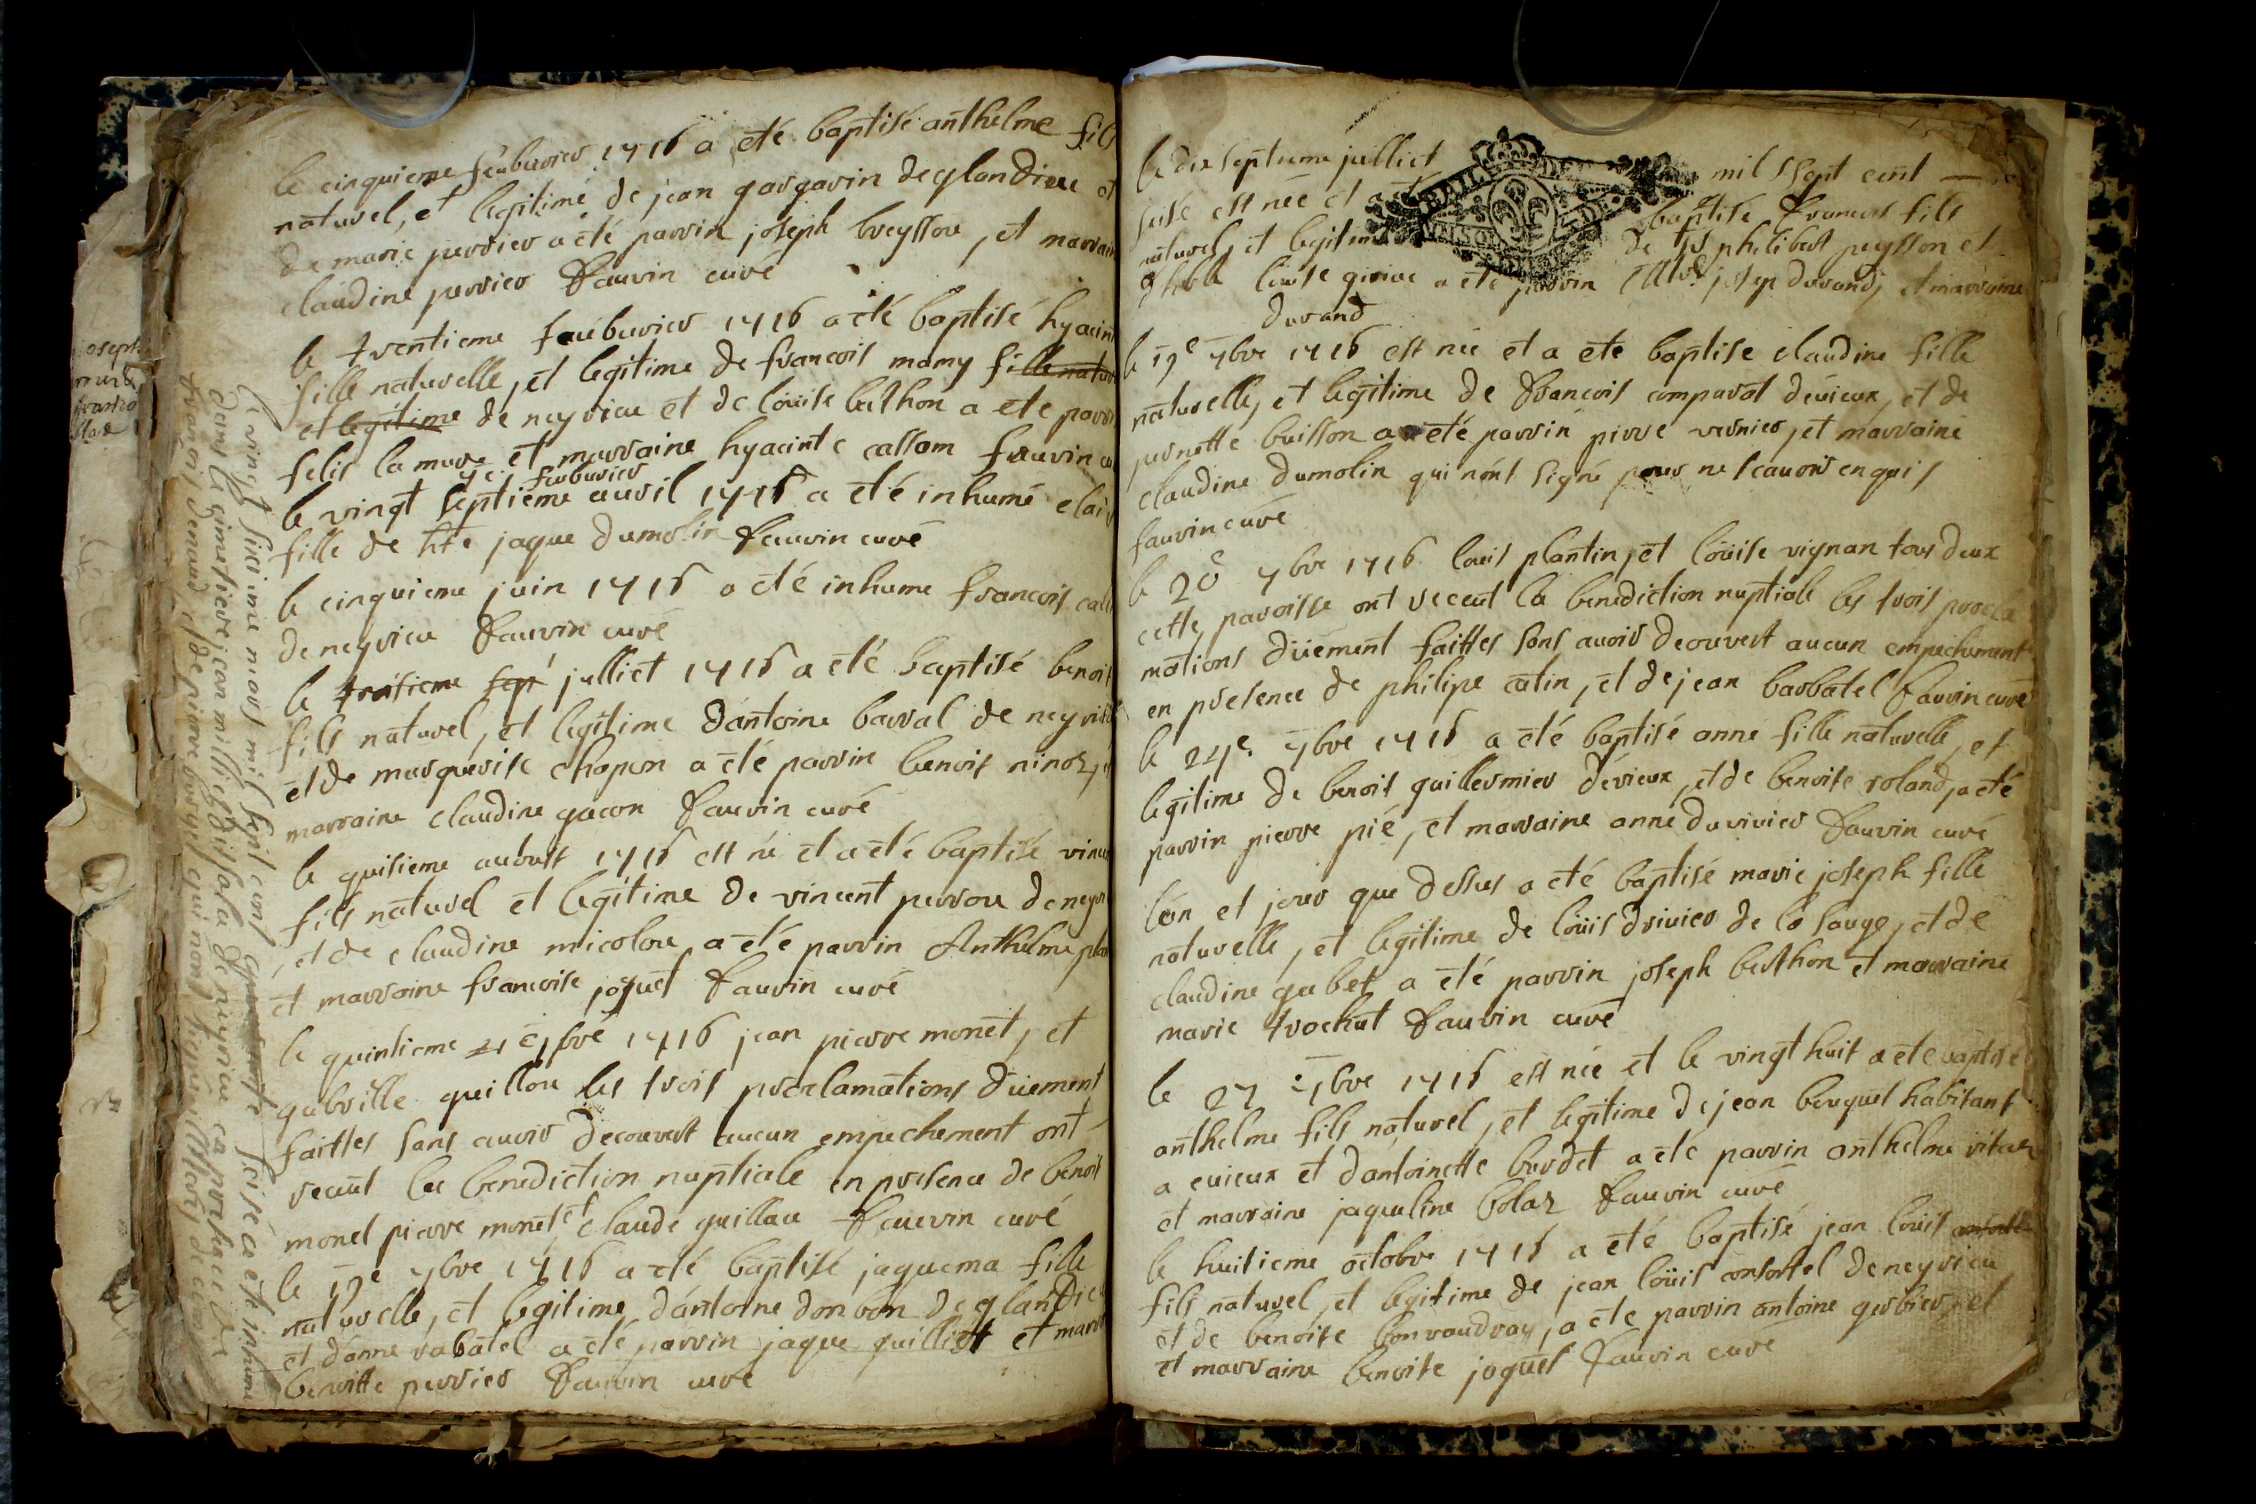 le cinquieme feubvrier 1716 a eté baptisé anthelme fils
naturel, et legitime de jean gargarin de glandieu et
de marie perrier a eté parrin joseph breysson, et marrain
claudine perrier Fauvin curé
le trentieme feubvrier 1716 a eté baptisé hyacin
fille naturelle, et legitime de francois mamy fille natur
et legitime de neyrieu et de loüise berthon a eté parri
felis la mure et marraine hyacinte cassom fauvin cu
feubvrier
le vingt septieme auril 1716 a eté inhumé clau
fille de jaque dumolin Fauvin curé
le cinquieme juin 1716 a eté inhume francois
de neyrieu Fauvin curé
le troisieme sept julliet 1716 a eté baptisé benoit
fils naturel, et legitime d'antoine barral de neyrieu
et de marguerite chapon a eté parrin benoit ninoz, et
marraine claudine gacon Fauvin curé
le quisieme auoust 1716 est né et a eté baptisé vincen
fils naturel et legitime de vincent perrou de neyri
, et de claudine micolou, a eté parrin Anthelme plan
et marraine francoise joquet Fauvin curé
le quintieme 7bre 1716 jean pierre monet, et
gabrille guillou les trois proclamations düement
faittes sans avoir decouvert aucun empechement ont
receut la benediction nuptiale en presence de benoit
monet pierre monet et claude guillau Fauvin curé
le 19e 7bre 1716 a eté baptisé jaquema fille
naturelle, et legitime d'antoine donbon de glandieu
et d'anne rabatel a eté parrin jaque guilliot et marr
benoitte perrier Fauvin curé
le vingt sixieme mars mil sept cent seisé a eté inhumé
dans la cimetiere jean milliet dit sala de neyrieu en presence de
francois renaud et de pierre borget qui n'ont signé illeterés de ce enquis
le dix septieme julliet mil ssept cent
seisé est née et a eté baptise Francois fils
naturel, et legitime de sr philibert peysson et
louise girine a eté parrin josep durand, et marraine
durand
le 19e 7bre 1716 est née et a eté baptise claudine fille
naturelle, et legitime de Francois comparot d'evieux, et de
pernette buisson a eté parrin pirre vernier, et marraine
claudine dumolin qui n'ont signé pour ne scauoir enquis
fauvin curé
le 20e 7bre 1716 louis plantin, et loüise vignan tous deux
cette paroisse ont receut la benediction nuptiale les trois procla
mations düement faittes sans avoir decouvert aucun empechement
en presence de philipe catin, et de jean barbatel Fauvin curé
le 24e 7bre 1716 a eté baptisé anne fille naturelle, et
legitime de benoit guillermier d'evieux, et de benoite roland, a eté
parrin pierre pié, et marraine anne du vivier Fauvin curé
l'an et jour que dessus a eté baptisé marie joseph fille
naturelle, et legitime de loüis drivier de la sauge, et de
claudine gubet a eté parrin joseph berthon et marraine
marie trochut Fauvin curé
le 27 7bre 1716 est née et le vingt huit a eté baptisé
anthelme fils naturel, et legitime de jean bouquet habitant
a euieux et d'antoinette burdet a eté parrin anthelme vitoz
et marraine jaqueline bolaz Fauvin curé
le huitieme octobre 1716 a eté baptisé jean loüis
fils naturel, et legitime de jean loüis consortel de neyrieu
et de benoite bonvaudray, a eté parrin antoine gerbier, et
et marraine benoite joquet Fauvin curé